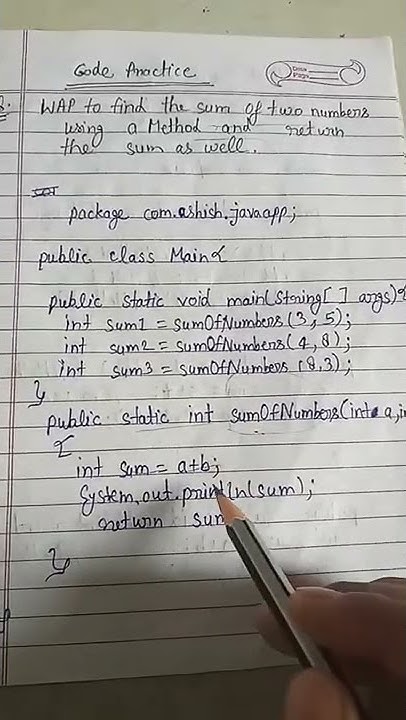 Code Practice
Date
Page
WAP to find the sum of two numbers
using a Method and return
the sum as well.
package com.ashish.javaapp;
public class Main{
public static void main(String[] args){
int sum1 = sumOfNumbers(3,5);
int sum2 = sumOfNumbers(4,8);
int sum3 = sumOfNumbers(8,3);
}
public static int sumOfNumbers(int a,in
{
int sum = a+b;
System.out.println(sum);
return sum
}